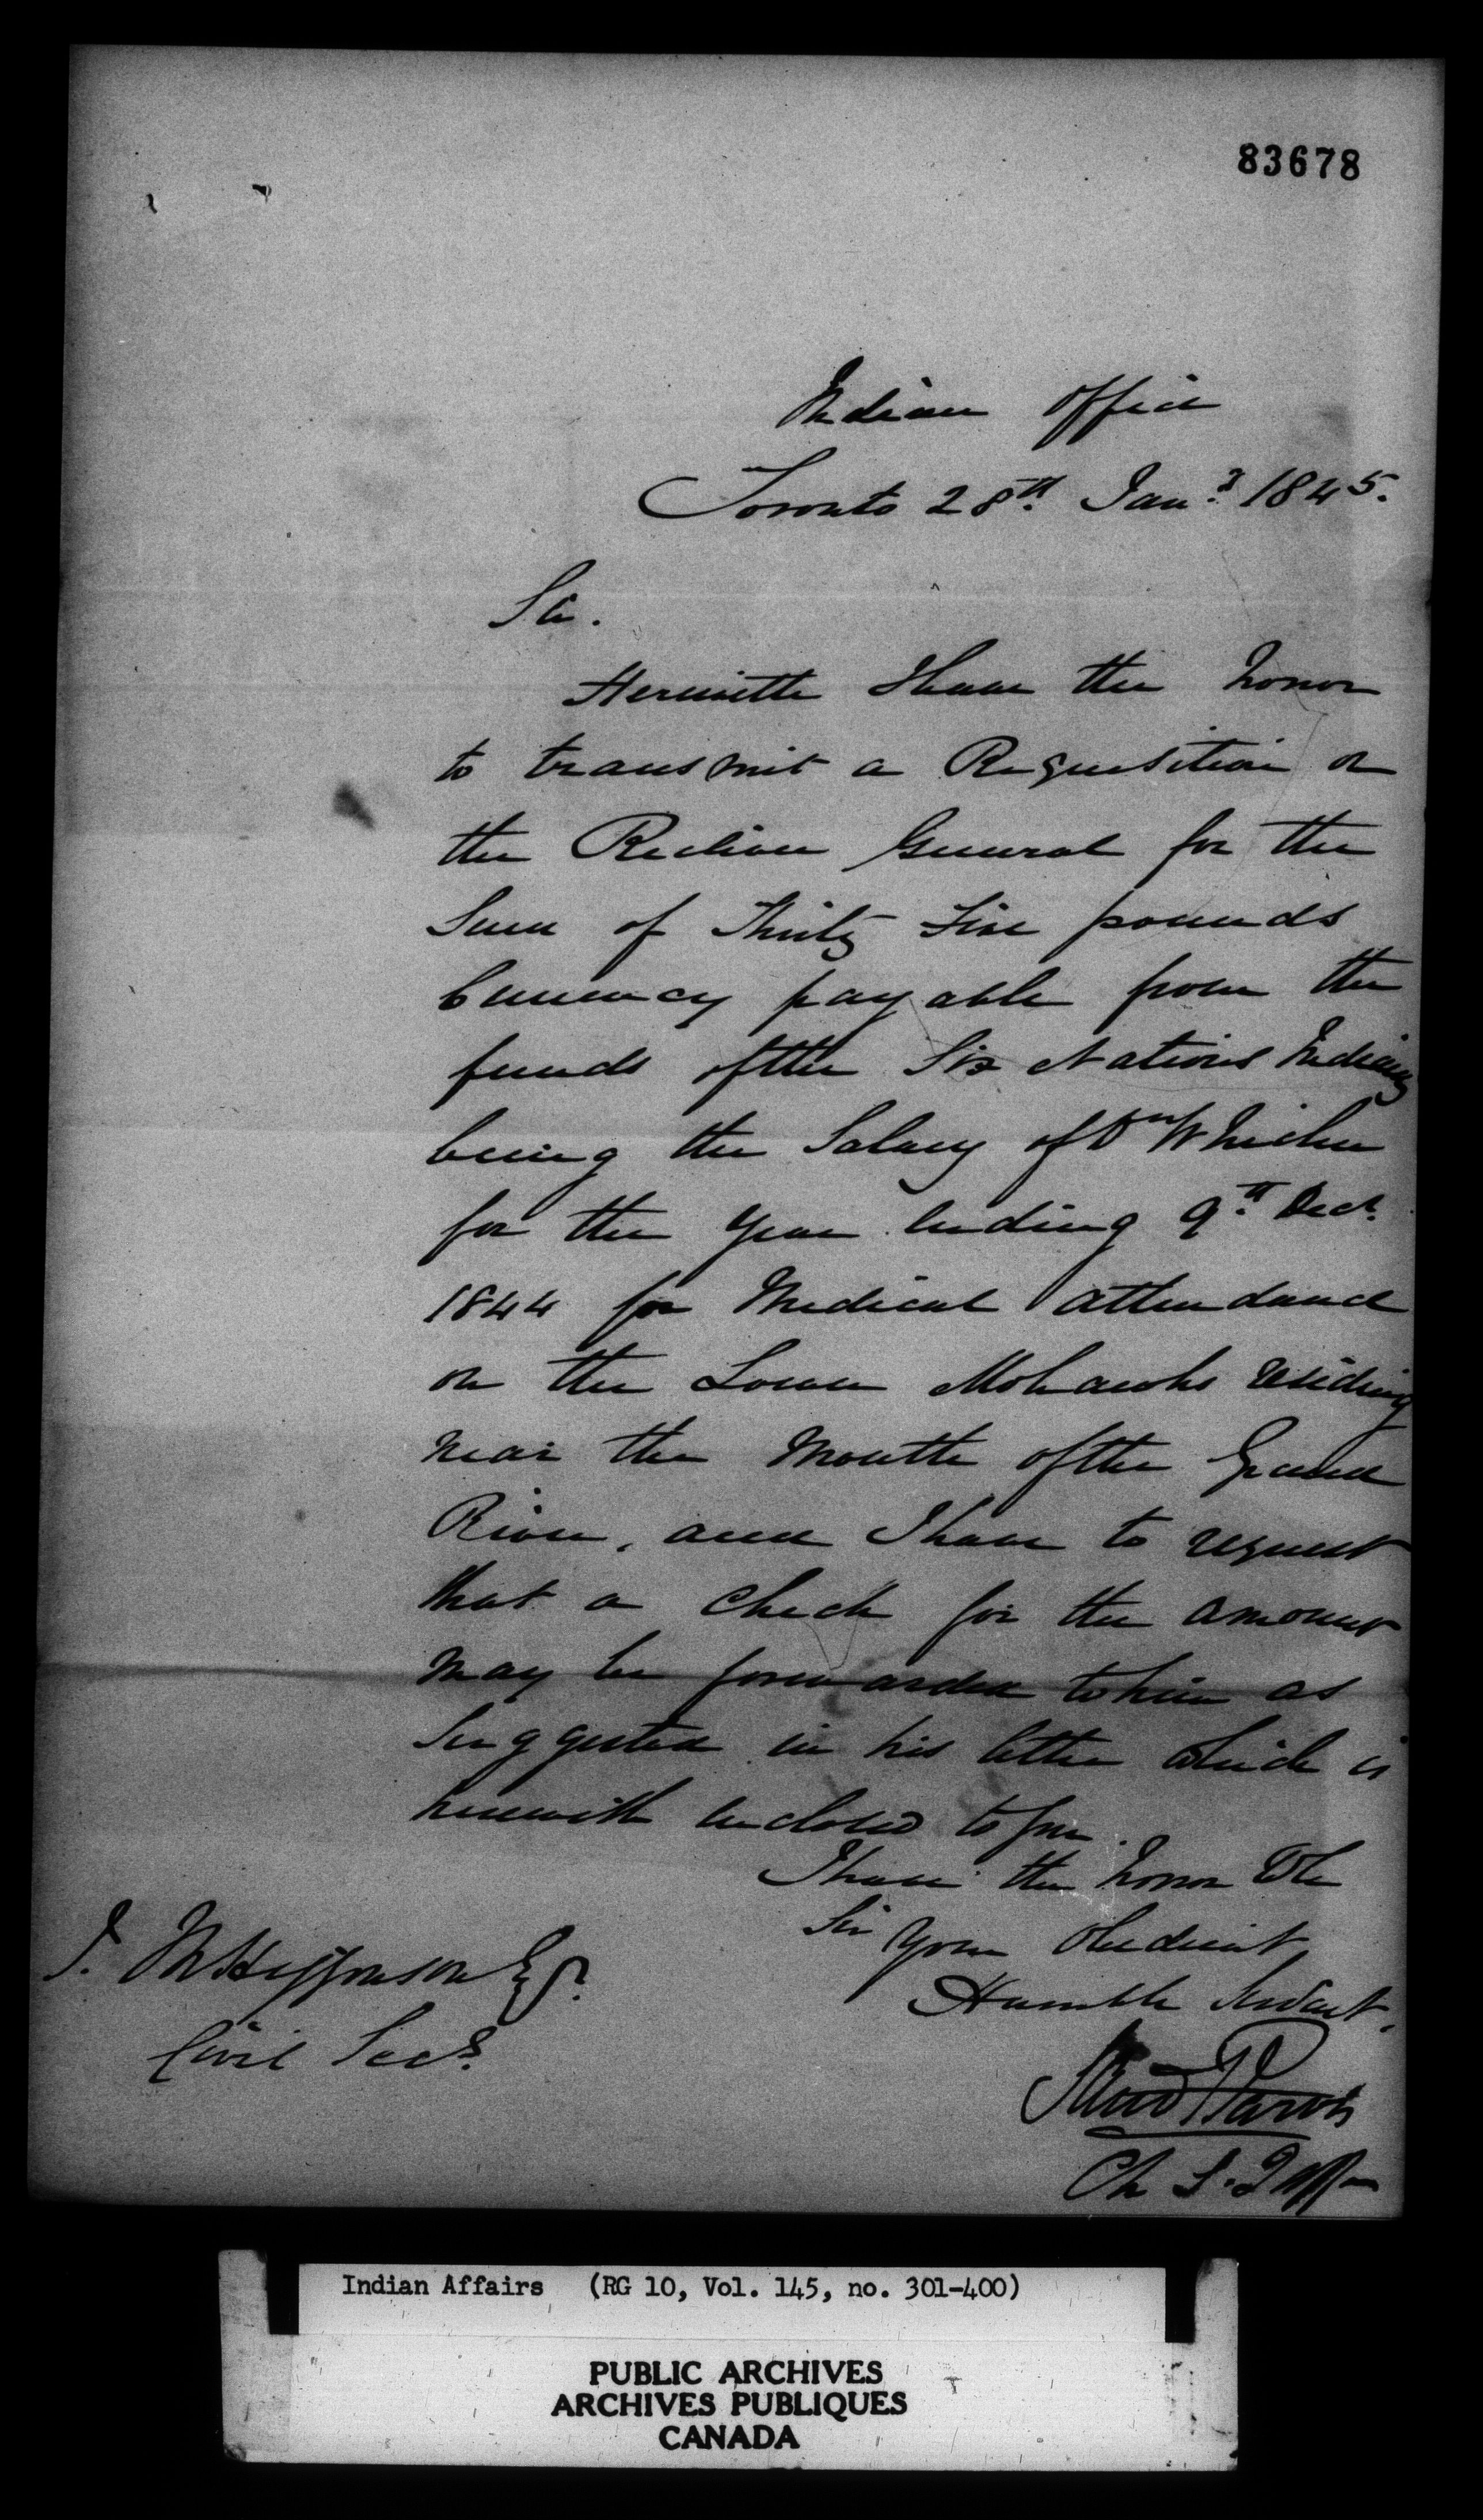 83678
Indian Office
Toronto 28th. Jany. 1845.
Sir.
Herewith I have the honor
to transmit a Requisition on
the Receiver General for the
Sum of Thirty Five pounds
Currency payable from the
funds of the Six Nations Indians
being the Salary of Dr
for the year ending 9th. Decr.
1844 for Medical attendance
on the Lower Mohawks residing
near the Mouth of the Grand
River, and I have to request
that a Check for the amount
may be forwarded to him as
Suggested in his letter which is
herewith enclosed to you.
I have the honor to be
Sir
Your Obedient
Humble Servant.
J. M Higginson Esqr.
Civil Secy.
Jarvis
Ch S. I A
Indian Affairs (RG 10, Vol. 145, no. 301-400)
PUBLIC ARCHIVES
ARCHIVES PUBLIQUES
CANADA